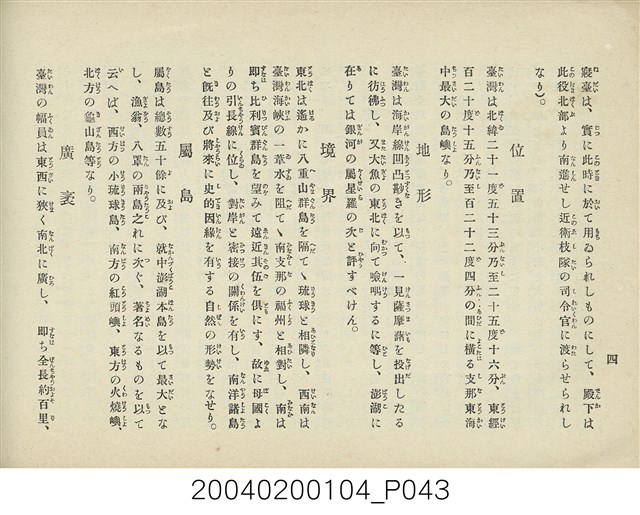 四
寢臺は、實に此時に於て用ゐられしものにして、殿下は
此役北部より南進せし近衛枝隊の司令官に渡らせられし
なり)。
位置
臺灣は北緯二十一度五十三分乃至二十五度十六分、東經
百二十度十五分乃至百二十二度四分の間に橫る支那東海
中最大の島嶼なり。
地形
臺灣は海岸線凹凸尠きを以て、一見薩摩藷を投出したる
に彷彿し、又大魚の東北に向て喰喁するに等し、澎湖に
在りては銀河の屬星羅の次と評すべけん。
境界
東北は遙かに八重山群島を隔てゝ琉球と相隣し、西南は
臺灣海峽の一葦水を阻てゝ南支那の福州と相對し、南は
即ち比利賓群島を望みて遠近其伍を俱にす、故に母國よ
りの引長線に位し、對岸と密接の關係を有し、南洋諸島
と旣往及び將來に史的因緣を有する自然の形勢をなせり。
屬島
屬島は總數五十餘に及び、就中澎湖本島を以て最大とな
し、漁翁、八罩の兩島之れに次ぐ、著名なるものを以て
云へば、西方の小琉球島、南方の紅頭嶼、東方の火燒嶼、
北方の龜山島等なり。
廣袤
臺灣の幅員は東西に狹く南北に廣し、卽ち全長約百里、
20040200104_P043